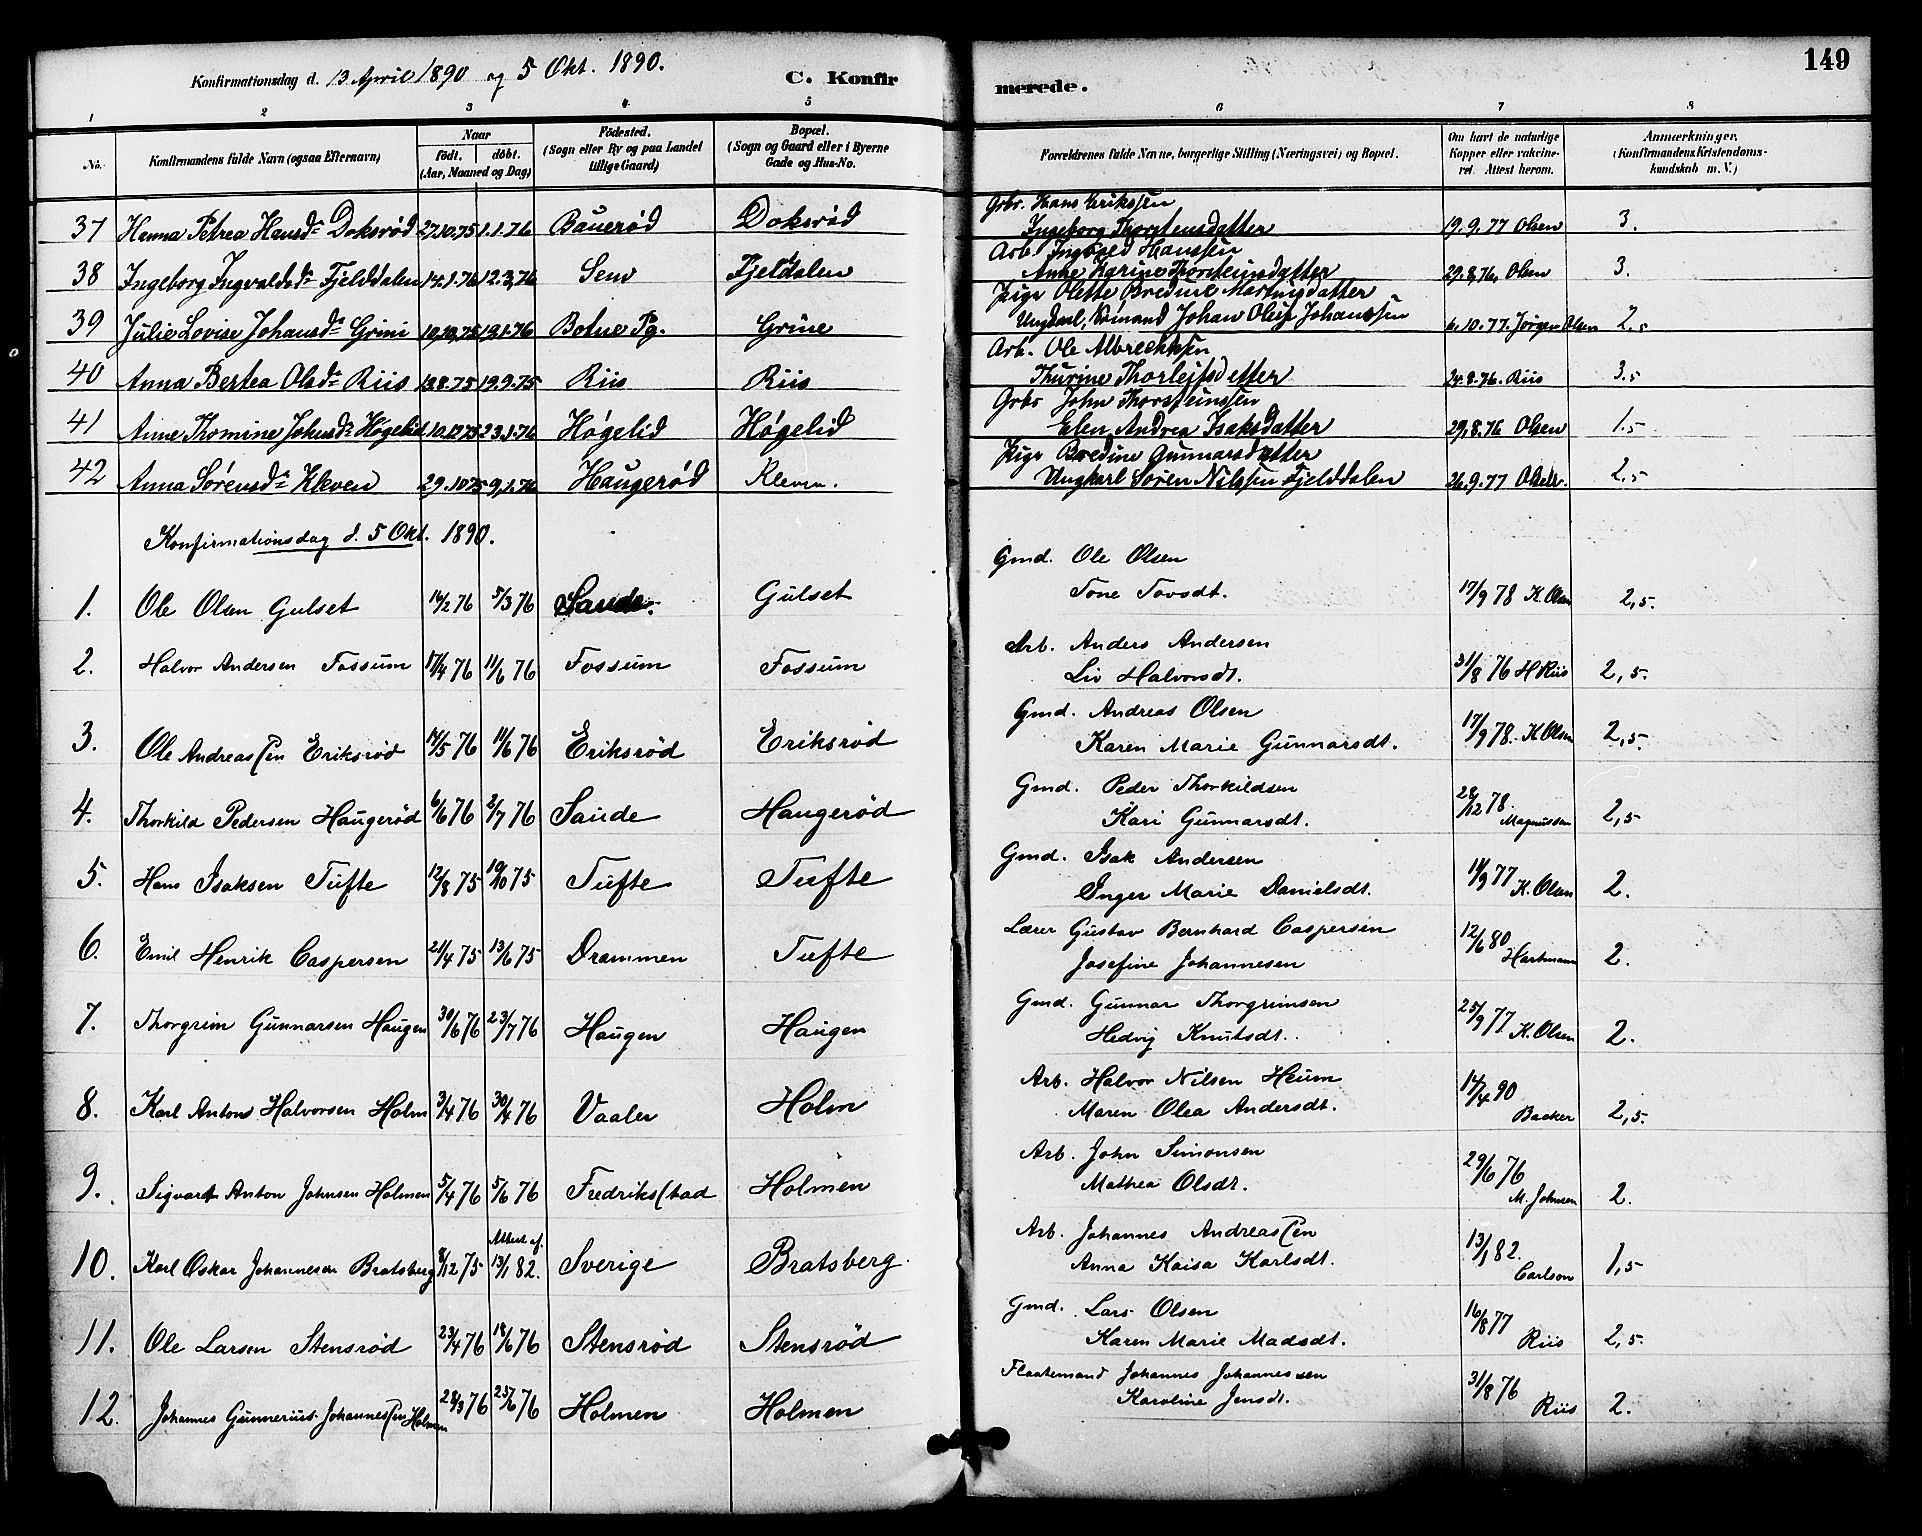 149
Konfirmationsdag d. 13 April 1890 og 5 Okt. 1890. C. Konfirmerede.
1 2 3 4 5 6 7 8
No. Konfirmandens fulde Navn (ogsaa Efternavn) Naar født. døbt. (Aar, Maaned og Dag) Födested. (Sogn eller By og paa Landet tillige Gaard) Bopæl. (Sogn og Gaard eller i Byerne Gade og Hus-No. Forældrenes fulde Navne, borgerlige Stilling (Næringsvei) og Bopæl. Om havt de naturlige Kopper eller vakcineret. Attest herom. Anmærkninger. (Konfirmandens Kristendomskundskab m. V.)
37 Hanna Petrea Hansdr Doksrød 27.10.75 1.1.76 Bauerød Doksrød Grbr. Hans Erikssen
Ingeborg Thorstensdatter 19.9.77 Olsen 3.
38 Ingeborg Ingvaldsdr Fjelddalen 14.1.76 12.3.76 Sem Fjeldalen Arb. Ingvald Hanssen
Anne Karine Thorsteinsdatter 29.8.76, Olsen 3.
39 Julie Lovise Johansdr Grini 10.10.75 19.1.76 Botne Pg. Grine Pige Olette Bredine Martinsdatter
Ungkarl, Sømand Johan Oluf Johanssen 6.10.77. Jørgen Olsen 2.5
40 Anna Bertea Olsdr Riis 13.8.75 19.9.75 Riis Riis Arb. Ole Albrechtsen
Thurine Thorleifsdatter 24.8.76. Riis 3.5
41 Anne Thomine Johnsdr Høgelid 10.12.75 23.1.76 Høgelid Høgelid Grbr John Thorsteinssen
Elen Andrea Isaksdatter 29.8.76 Olsen 1.5
42 Anna Sørensdr Kleven 29.10.75 9.1.76 Haugerød Kleven. Pige Bredine Gunnarsdatter
Ungkarl Søren Nilssen Fjelddalen 26.9.77 Olsen. 2.5
Konfirmationsdag d. 5 Okt. 1890.
1. Ole Olsen Gulset 14/2 76 5/3 76 Saude. Gulset Gmd. Ole Olsen
Tone Tovsdt. 17/9 78 K. Olsen 2,5.
2. Halvor Andersen Fossum 17/4 76 11/6 76 Fossum Fossum Arb. Anders Andersen
Liv Halvorsdt. 31/8 76 H Riis 2,5.
3. Ole Andreassen Eriksrød 14/5 76 11/6 76 Eriksrød Eriksrød Gmd. Andreas Olsen
Karen Marie Gunnarsdt. 17/9 78. K Olsen 2,5.
4. Thorkild Pedersen Haugerød 6/6 76 2/7 76 Saude Haugerød Gmd. Peder Thorkildsen
Kari Gunnarsdt. 28/12 78. Magnussen 2,5
5. Hans Isaksen Tufte 12/8 75 10/10 75 Tufte Tufte Gmd. Isak Andersen
Inger Marie Danielsdt. 19/9 77 K. Olsen 2.
6. Emil Henrik Caspersen 21/4 75 13/6 75 Drammen Tufte Lærer Gustav Bernhard Caspersen
Josefine Johannesen 12/6 80 Hartmann 2.
7. Thorgrim Gunnarsen Haugen 30/6 76 23/7 76 Haugen Haugen Gmd. Gunnar Thorgrimsen
Hedvig Knutsdt. 25/9 77 K. Olsen 2.
8. Karl Antons Halvorsen Holm 3/4 76 30/4 76 Vaaler Holm Arb. Halvor Nilsen Heum
Maren Olea Andersdt. 14/4 90 Backer 2,5.
9. Sigvart Anton Johnsen Holmen 5/4 76 5/6 76 Fredriksstad Holmen Arb. John Simonsen
Mathea Olsdt. 29/6 76 M. Johnsen 2.
10. Karl Oskar Johannesen Bratsberg 8/12 75 Attest af. 13/1 82. Sverige Bratsberg. Arb. Johannes Andreassen
Anna Kaisa Karlsdt. 13/1 82. Carlson 1,5
11. Ole Larsen Stensrød 23/4 76 18/6 76 Stensrød Stensrød Gmd. Lars Olsen
Karen Marie Madsdt. 16/8 77 Riis 2,5.
12. Johannes Gunnerius Johannessen Holmen 28/3 76 25/6 76 Holmen Holmen Flaatemand Johannes Johannessen
Karoline Jensdt. 31/8 76 Riis 2.